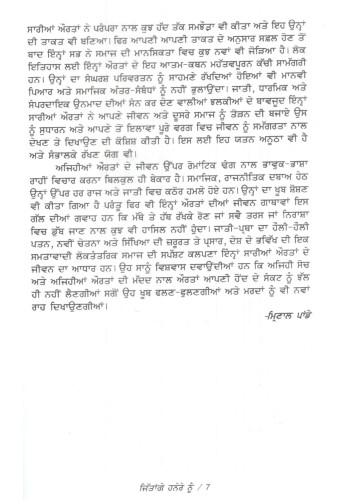 ਸਾਰੀਆਂ ਔਰਤਾਂ ਨੇ ਪਰੰਪਰਾ ਨਾਲ ਕੁਝ ਹੱਦ ਤੱਕ ਸਮਝੌਤਾ ਵੀ ਕੀਤਾ ਅਤੇ ਇਹ ਉਨ੍ਹਾਂ
ਦੀ ਤਾਕਤ ਵੀ ਬਣਿਆ। ਫਿਰ ਆਪਣੀ ਆਪਣੀ ਤਾਕਤ ਦੇ ਅਨੁਸਾਰ ਸਫ਼ਲ ਹੋਣ ਤੋਂ
ਬਾਦ ਇੰਨ੍ਹਾਂ ਸਭ ਨੇ ਸਮਾਜ ਦੀ ਮਾਨਸਿਕਤਾ ਵਿਚ ਕੁਝ ਨਵਾਂ ਵੀ ਜੋੜਿਆ ਹੈ। ਲੋਕ
ਇਤਿਹਾਸ ਲਈ ਇੰਨ੍ਹਾਂ ਔਰਤਾਂ ਦੇ ਇਹ ਆਤਮ-ਕਥਨ ਮਹੱਤਵਪੂਰਨ ਕੱਚੀ ਸਾਮੱਗਰੀ
ਹਨ। ਉਨ੍ਹਾਂ ਦਾ ਸੰਘਰਸ਼ ਪਰਿਵਰਤਨ ਨੂੰ ਸਾਹਮਣੇ ਰੱਖਦਿਆਂ ਹੋਇਆਂ ਵੀ ਮਾਨਵੀ
ਪਿਆਰ ਅਤੇ ਸਮਾਜਿਕ ਅੰਤਰ-ਸੰਬੰਧਾਂ ਨੂੰ ਨਹੀਂ ਭੁਲਾਉਂਦਾ। ਜਾਤੀ, ਧਾਰਮਿਕ ਅਤੇ
ਸੰਪਰਦਾਇਕ ਉਨਮਾਦ ਦੀਆਂ ਸੰਨ ਕਰ ਦੇਣ ਵਾਲੀਆਂ ਝਲਕੀਆਂ ਦੇ ਬਾਵਜੂਦ ਇੰਨ੍ਹਾਂ
ਸਾਰੀਆਂ ਔਰਤਾਂ ਨੇ ਆਪਣੇ ਜੀਵਨ ਅਤੇ ਦੂਸਰੇ ਸਮਾਜ ਨੂੰ ਤੋੜਨ ਦੀ ਬਜਾਏ ਉਸ
ਨੂੰ ਸੁਧਾਰਨ ਅਤੇ ਆਪਣੇ ਤੋਂ ਇਲਾਵਾ ਪੂਰੇ ਵਰਗ ਵਿਚ ਜੀਵਨ ਨੂੰ ਸਮੱਗਰਤਾ ਨਾਲ
ਦੇਖਣ ਤੇ ਦਿਖਾਉਣ ਦੀ ਕੋਸ਼ਿਸ਼ ਕੀਤੀ ਹੈ। ਇਸ ਲਈ ਇਹ ਯਤਨ ਅਨੂਠਾ ਵੀ ਹੈ
ਅਤੇ ਸੰਭਾਲਕੇ ਰੱਖਣ ਯੋਗ ਵੀ।
ਅਜਿਹੀਆਂ ਔਰਤਾਂ ਦੇ ਜੀਵਨ ਉੱਪਰ ਰੋਮਾਂਟਿਕ ਢੰਗ ਨਾਲ ਭਾਵੁਕ-ਭਾਸ਼ਾ
ਰਾਹੀਂ ਵਿਚਾਰ ਕਰਨਾ ਬਿਲਕੁਲ ਹੀ ਬੇਕਾਰ ਹੈ। ਸਮਾਜਿਕ, ਰਾਜਨੀਤਿਕ ਦਬਾਅ ਹੇਠ
ਉਨ੍ਹਾਂ ਉੱਪਰ ਹਰ ਰਾਜ ਅਤੇ ਜਾਤੀ ਵਿਚ ਕਠੋਰ ਹਮਲੇ ਹੋਏ ਹਨ। ਉਨ੍ਹਾਂ ਦਾ ਖੂਬ ਸ਼ੋਸ਼ਣ
ਵੀ ਕੀਤਾ ਗਿਆ ਹੈ ਪਰੰਤੂ ਫਿਰ ਵੀ ਇੰਨ੍ਹਾਂ ਔਰਤਾਂ ਦੀਆਂ ਜੀਵਨ ਗਾਥਾਵਾਂ ਇਸ
ਗੱਲ ਦੀਆਂ ਗਵਾਹ ਹਨ ਕਿ ਮੱਥੇ ਤੇ ਹੱਥ ਰੱਖਕੇ ਰੋਣ ਜਾਂ ਸਵੈ ਤਰਸ ਜਾਂ ਨਿਰਾਸ਼ਾ
ਵਿਚ ਡੁੱਬ ਜਾਣ ਨਾਲ ਕੁਝ ਵੀ ਹਾਸਿਲ ਨਹੀਂ ਹੁੰਦਾ। ਜਾਤੀ-ਪ੍ਰਥਾ ਦਾ ਹੌਲੀ-ਹੌਲੀ
ਪਤਨ, ਨਵੀਂ ਚੇਤਨਾ ਅਤੇ ਸਿੱਖਿਆ ਦੀ ਜ਼ਰੂਰਤ ਤੇ ਪ੍ਰਸਾਰ, ਦੇਸ਼ ਦੇ ਭਵਿੱਖ ਦੀ ਇਕ
ਸਮਤਾਵਾਦੀ ਲੋਕਤੰਤਰਿਕ ਸਮਾਜ ਦੀ ਸਪੱਸ਼ਟ ਕਲਪਣਾ ਇੰਨ੍ਹਾਂ ਸਾਰੀਆਂ ਔਰਤਾਂ ਦੇ
ਜੀਵਨ ਦਾ ਆਧਾਰ ਹਨ। ਉਹ ਸਾਨੂੰ ਵਿਸ਼ਵਾਸ ਦਵਾਉਂਦੀਆਂ ਹਨ ਕਿ ਅਜਿਹੀ ਸੋਚ
ਅਤੇ ਅਜਿਹੀਆਂ ਔਰਤਾਂ ਦੀ ਮੱਦਦ ਨਾਲ ਔਰਤਾਂ ਆਪਣੀ ਹੋਂਦ ਦੇ ਸੰਕਟ ਨੂੰ ਝੱਲ
ਹੀ ਨਹੀਂ ਲੈਣਗੀਆਂ ਸਗੋਂ ਉਹ ਖੂਬ ਫਲਣ-ਫੁਲਣਗੀਆਂ ਅਤੇ ਮਰਦਾਂ ਨੂੰ ਵੀ ਨਵਾਂ
ਰਾਹ ਦਿਖਾਉਣਗੀਆਂ।
-ਮ੍ਰਿਣਾਲ ਪਾਂਡੇ
ਜਿੱਤਾਂਗੇ ਹਨੇਰੇ ਨੂੰ / 7